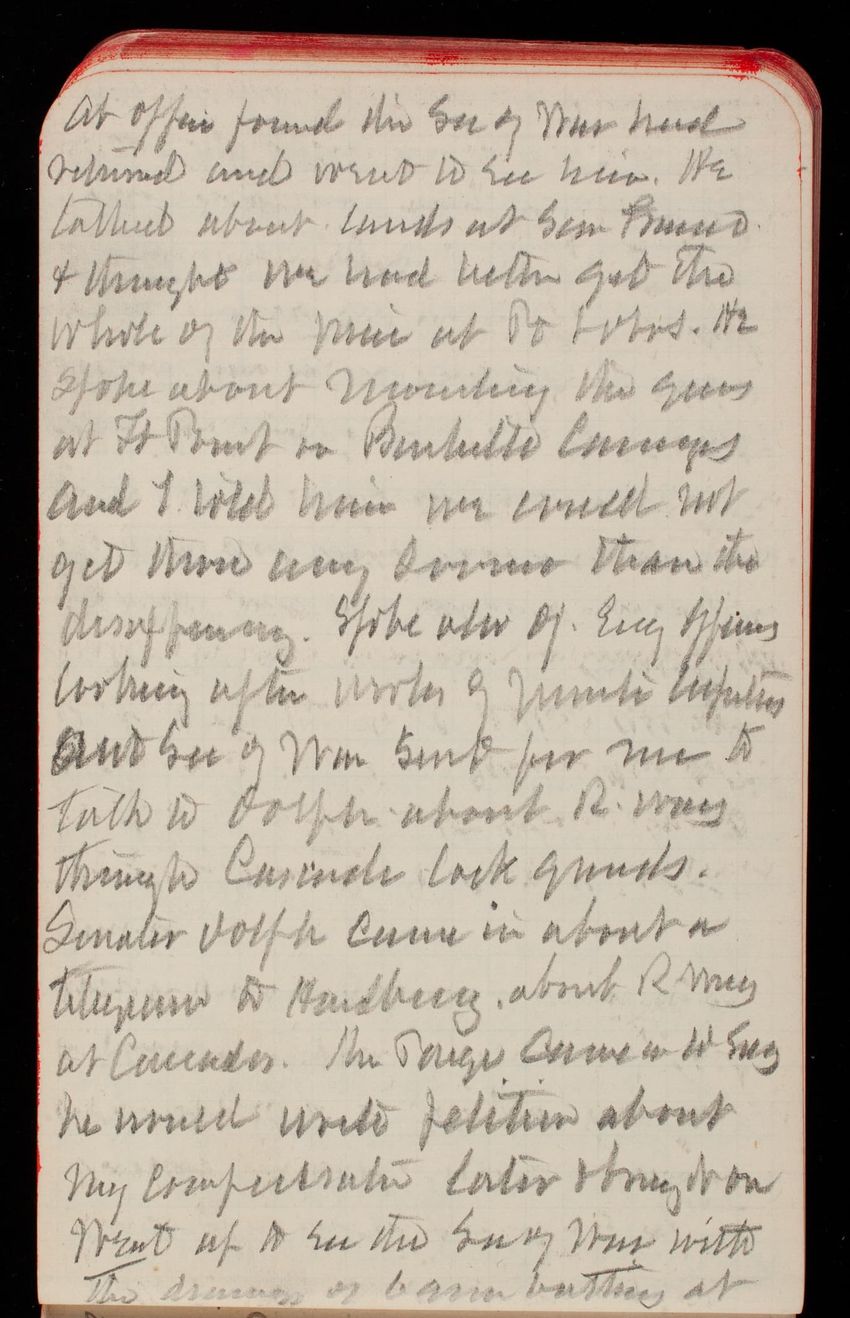 At office found the Sec of War had
returned and went to see him. He
talked about lands at San Franco.
& thought we had better get the
whole of the mine at Pt Lobos. He
spoke about mounting the guns
at Ft Point on Barbette Carriages
and I told him we could not
get them any sooner than the
disappearing. Spoke also of. Eng Officers
looking after works of
and Sec of War sent for me to
talk to Dolph about R. way
through Cascade lock grounds.
Senator Dolph came in about a
telegram to Handbury. about R way
at Cascades. Mr Page came in to say
he would write petition about
my compensation later & bring it in
Went up to see the Sec of War with
the drawings of at